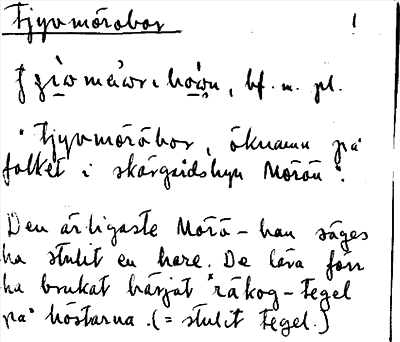 Tjyvmöröbor 1
bf. m. pl.
"Tjyvmöröbor, öknamn på
folket i skärgårdsbyn Mörön".
Den ärligaste Mörö-han säges
ha stulit en hare. De lära förr
ha brukat bärjat "råkog-tegel
på höstarna. (= stulit tegel.)